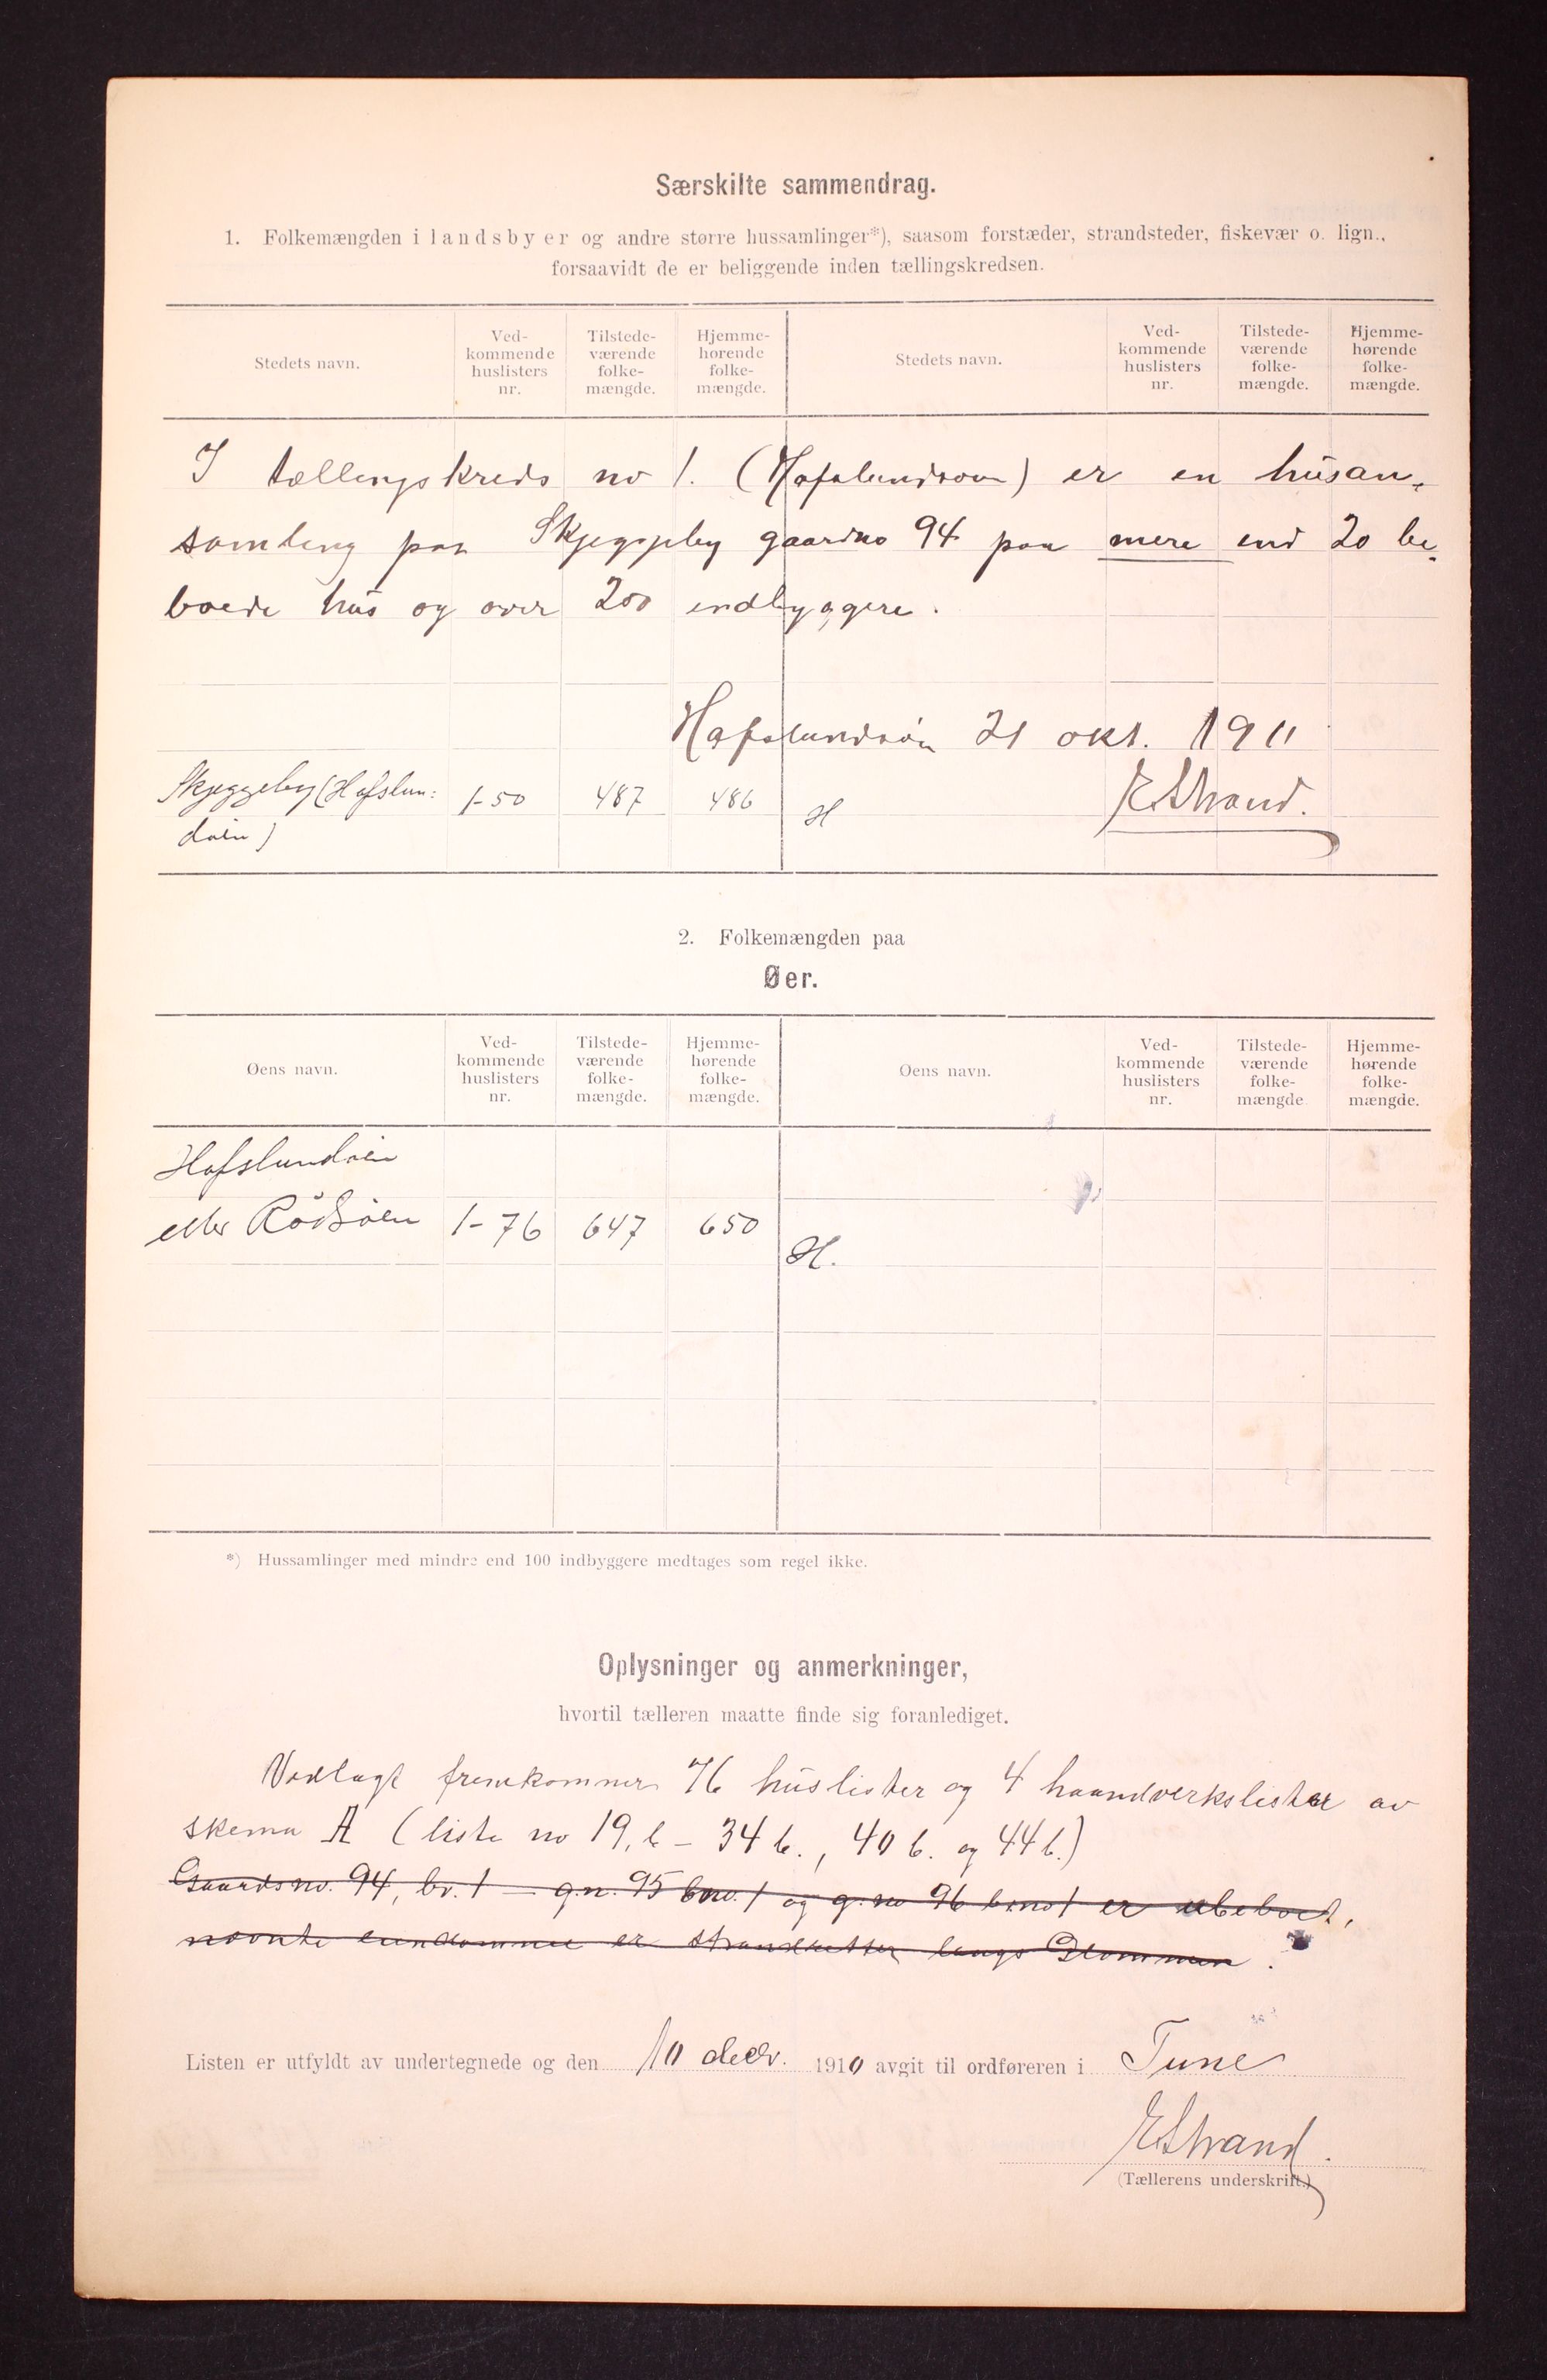 Særskilte sammendrag.
1. Folkemængden i landsbyer og andre større hussamlinger*), saasom forstæder, strandsteder, fiskevær o. lign.,
forsaavidt de er beliggende inden tællingskredsen.
Stedets navn.
Ved-
kommende
huslisters
nr.
Tilstede-
værende
folke-
mængde.
Hjemme-
hørende
folke-
mængde.
Stedets navn.
Ved-
kommende
huslisters
nr.
Tilstede-
værende
folke-
mængde.
Hjemme-
hørende
folke-
mængde.
I tællingskreds no 1. (Hafslundsøen) er en husan-
samling paa Skjeggeby gaardno 94 paa mere end 20 be-
boede hus og over 200 indbyggere.
Hafslundsøen 21 okt. 1911
Skjeggeby (Hafslun- 1-50 487 486 H EStrand.
døen)
2. Folkemængden paa
Øer.
Øens navn.
Ved-
kommende
huslisters
nr.
Tilstede-
værende
folke-
mængde.
Hjemme-
hørende
folke-
mængde.
Øens navn.
Ved-
kommende
huslisters
nr.
Tilstede-
værende
folke-
mængde
Hjemme-
hørende
folke-
mængde.
Hafslundøen
eller Rödsöen 1-76 647 650 H.
*) Hussamlinger med mindre end 100 indbyggere medtages som regel ikke.
Oplysninger og anmerkninger,
hvortil tælleren maatte finde sig foranlediget.
Vedlagt fremkommer 76 huslister og 4 haandverkslister av
skema A (liste no 19,b - 34 b., 40 b. og 44 b.)
Gaardsno. 94, br. 1 - g.n. 95 bno. 1 og g.no 96 b.no 1 er ubeboet,
nævnte eiendommer er strandretter langs Glommen.
Listen er utfyldt av undertegnede og den 10 decbr. 1910 avgit til ordføreren i Tune
EStrand.
(Tællerens underskrift.)